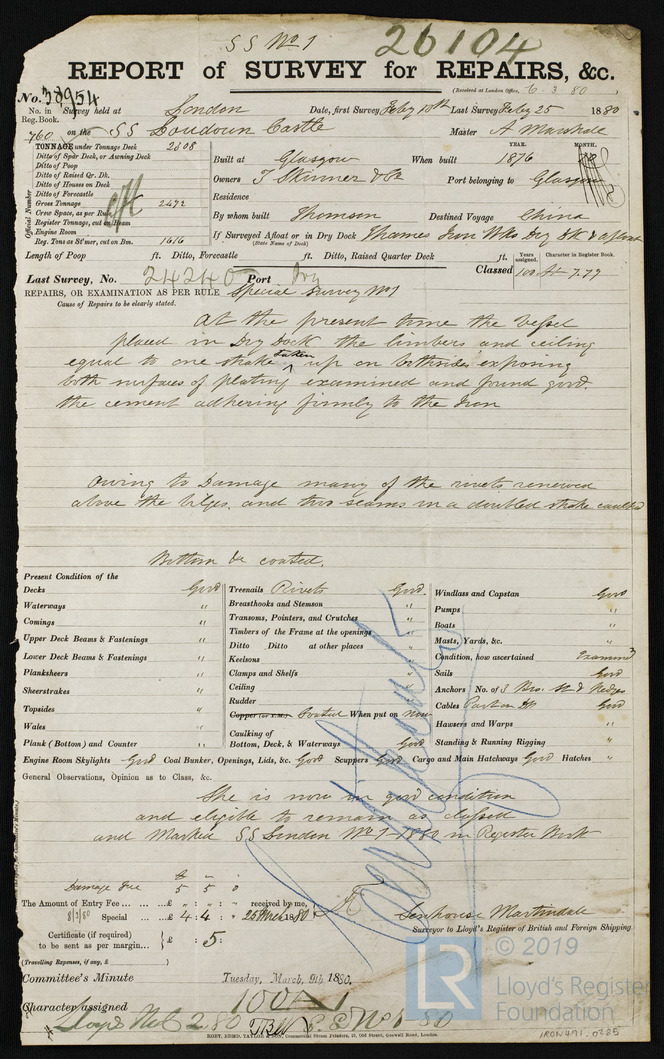 SS No 1
26104
REPORT of SURVEY for REPAIRS, &c.
(Received at London Office, 6.3.80)
No. 38954
No. in Reg. Book. Survey held at London Date, first Survey Feby 10th Last Survey Feby 25 1880
760 on the SS Loudoun Castle Master A Marshall
TONNAGE under Tonnage Deck 2308
Ditto of Spar Deck, or Awning Deck
Ditto of Poop
Ditto of Raised Qr. Dk.
Ditto of Houses on Deck
Ditto of Forecastle
Gross Tonnage 2472
Crew Space, as per Rule
Register Tonnage, cut on Beam
Engine Room
Reg. Tons as St'mer, cut on Bm. 1616
Official Number
YEAR. MONTH.
Built at Glasgow When built 1876
Owners T Skinner & Co Port belonging to Glasgow
Residence
By whom built Thomson Destined Voyage China
If Surveyed Afloat or in Dry Dock Thames Iron Wks Dry Dk & afloat
(State Name of Dock)
Length of Poop ft. Ditto, Forecastle ft. Ditto, Raised Quarter Deck ft.
Years assigned. Character in Register Book.
Last Survey, No. 24240 Port
Classed 100 A 7.77
REPAIRS, OR EXAMINATION AS PER RULE Special Survey No 1
Cause of Repairs to be clearly stated.
At the present time the vessel
placed in Dry Dock the limbers and ceiling
equal to one strake taken up on bothsides exposing
both surfaces of plating examined and found good.
the cement adhering firmly to the Iron
Owing to Damage many of the rivets renewed
above the bilges and two seams in a doubled strake caulked
Bottom &c coated.
Present Condition of the
Decks Good
Waterways "
Comings "
Upper Deck Beams & Fastenings "
Lower Deck Beams & Fastenings "
Planksheers "
Sheerstrakes "
Topsides "
Wales "
Plank (Bottom) and Counter "
Treenails Rivets Good
Breasthooks and Stemson "
Transoms, Pointers, and Crutches "
Timbers of the Frame at the openings "
Ditto Ditto at other places "
Keelsons "
Clamps and Shelfs "
Ceiling "
Rudder "
Copper Coated When put on Now
Caulking of Bottom, Deck, & Waterways Good
Windlass and Capstan Good
Pumps "
Boats "
Masts, Yards, &c. "
Condition, how ascertained Examined
Sails Good
Anchors No. of 3 Bro. St & Kedges
Cables Good
Hawsers and Warps "
Standing & Running Rigging "
Engine Room Skylights Good Coal Bunker, Openings, Lids, &c. Good Scuppers Good Cargo and Main Hatchways Good Hatches "
General Observations, Opinion as to Class, &c.
She is now in good condition
and eligible to remain as classed
and Marked SS London No 1-1880 in Register Book
Damage fee 5 5 0
The Amount of Entry Fee £ " : " : " received by me,
8/3/80 Special £ 4 : 4 : " 1880
Senhouse Martindale
Certificate (if required) to be sent as per margin £ : 5 :
Surveyor to Lloyd's Register of British and Foreign Shipping.
(Travelling Expenses, if any, £ )
Committee's Minute Tuesday, March, 9th 1880.
Character assigned 100 A 1
Lloyds 2.80 S.S No 1-80
© 2019
LR
Lloyd's Register
Foundation
IRON491.0285